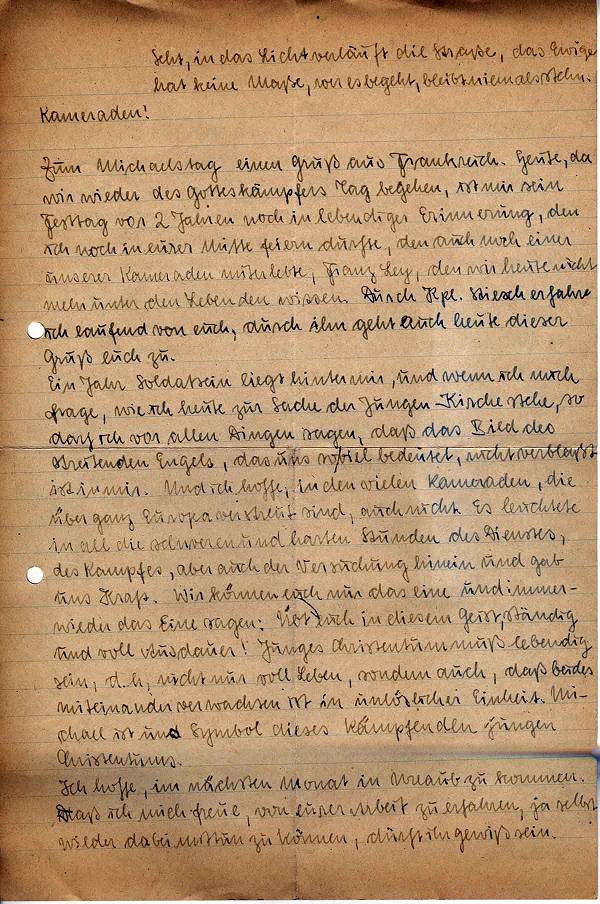 Seht, in das Licht verläuft die Straße, das Ewige
hat keine Maße, wer es begeht, bleibt niemals stehn.
Kameraden!
Zum Michaelstag einen Gruß aus Frankreich. Heute, da
wir wieder des Gotteskämpfers Tag begehen, ist mir sein
Festtag vor 2 Jahren noch in lebendiger Erinnerung, den
ich noch in eurer Mitte feiern durfte, den auch noch einer
unserer Kameraden miterlebte, Franz Ley, den wir heute nicht
mehr unter den Lebenden wissen. Durch Kpl. erfahre
ich laufend von euch, durch ihn geht auch heute dieser
Gruß euch zu.
Ein Jahr Soldatsein liegt hinter mir, und wenn ich mich
frage, wie ich heute zur Sache der Jungen-Kirche stehe, so
darf ich vor allen Dingen sagen, daß das Bild des
streitenden Engels, das uns soviel bedeutet, nicht verblaßt
ist in mir. Und ich hoffe, in den vielen Kameraden, die
über ganz Europa verstreut sind, auch nicht. Es leuchtete
in all die schweren und harten Stunden des Dienstes,
des Kampfes, aber auch der Versuchung hinein und gab
uns Kraft. Wir können euch nur das eine und immer-
wieder das Eine sagen: Übt euch in diesem Geist, ständig
und voll Ausdauer! Junges Christentum muß lebendig
sein, d.h, nicht nur voll Leben, sondern auch, daß beides
miteinander verwachsen ist in unlöslicher Einheit. Mi-
chael ist uns Symbol dieses kämpfenden jungen
Christentums.
Ich hoffe, im nächsten Monat in Urlaub zu kommen.
Daß ich mich freue, von eurer Arbeit zu erfahren, ja selbst
wieder dabei mittun zu können, dürft ihr gewiß sein.